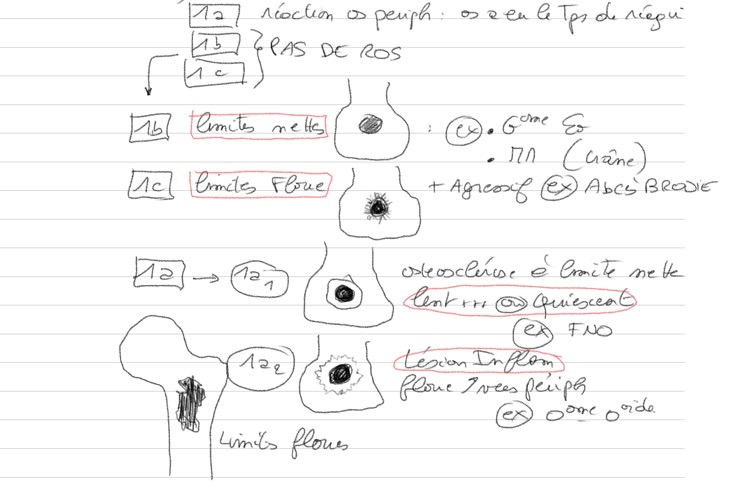 1a réaction os périph : os a eu le Tps de réagir
1b
PAS DE ROS
1c
1b limites nettes : ex • Gome Eo
• MM (Crâne)
1c limites Floue + Agressif ex Abcès BRODIE
1a → 1a1 osteosclérose è limite nette
lent +++ ou quiescent
ex FNO
1a2 Lésion Inflam
floue vers périph
ex Oome Ooide
Limites floues